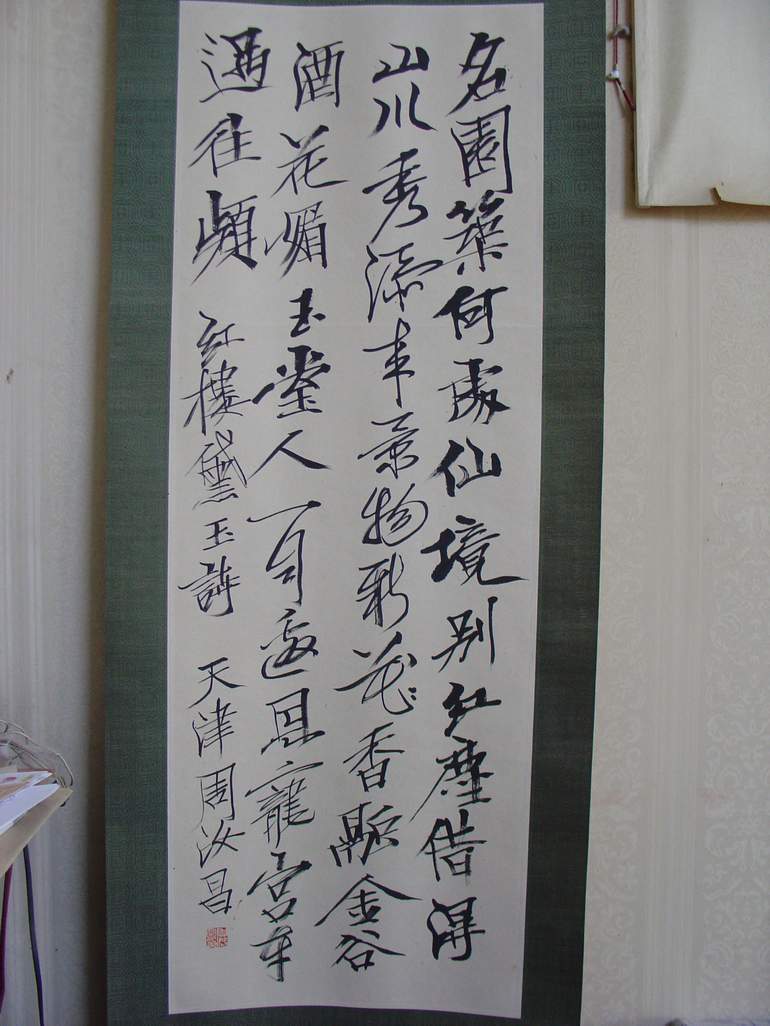 名園築何處仙境別紅塵借得
山川秀添来景物新花香融金谷
酒花媚玉堂人邀恩寵宮車
過往頻 紅樓黛玉詩 天津周汝昌